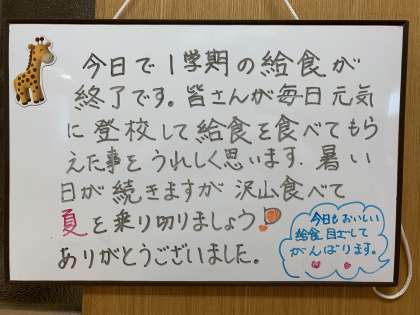 今日で1学期の給食が
終了です。皆さんが毎日元気
に登校して給食を食べてもら
えた事をうれしく思います.暑い
日が続きますが沢山食べて
夏を乗り切りましょう!
ありがとうございました。
今日もおいしい
給食目ざして
がんばります。